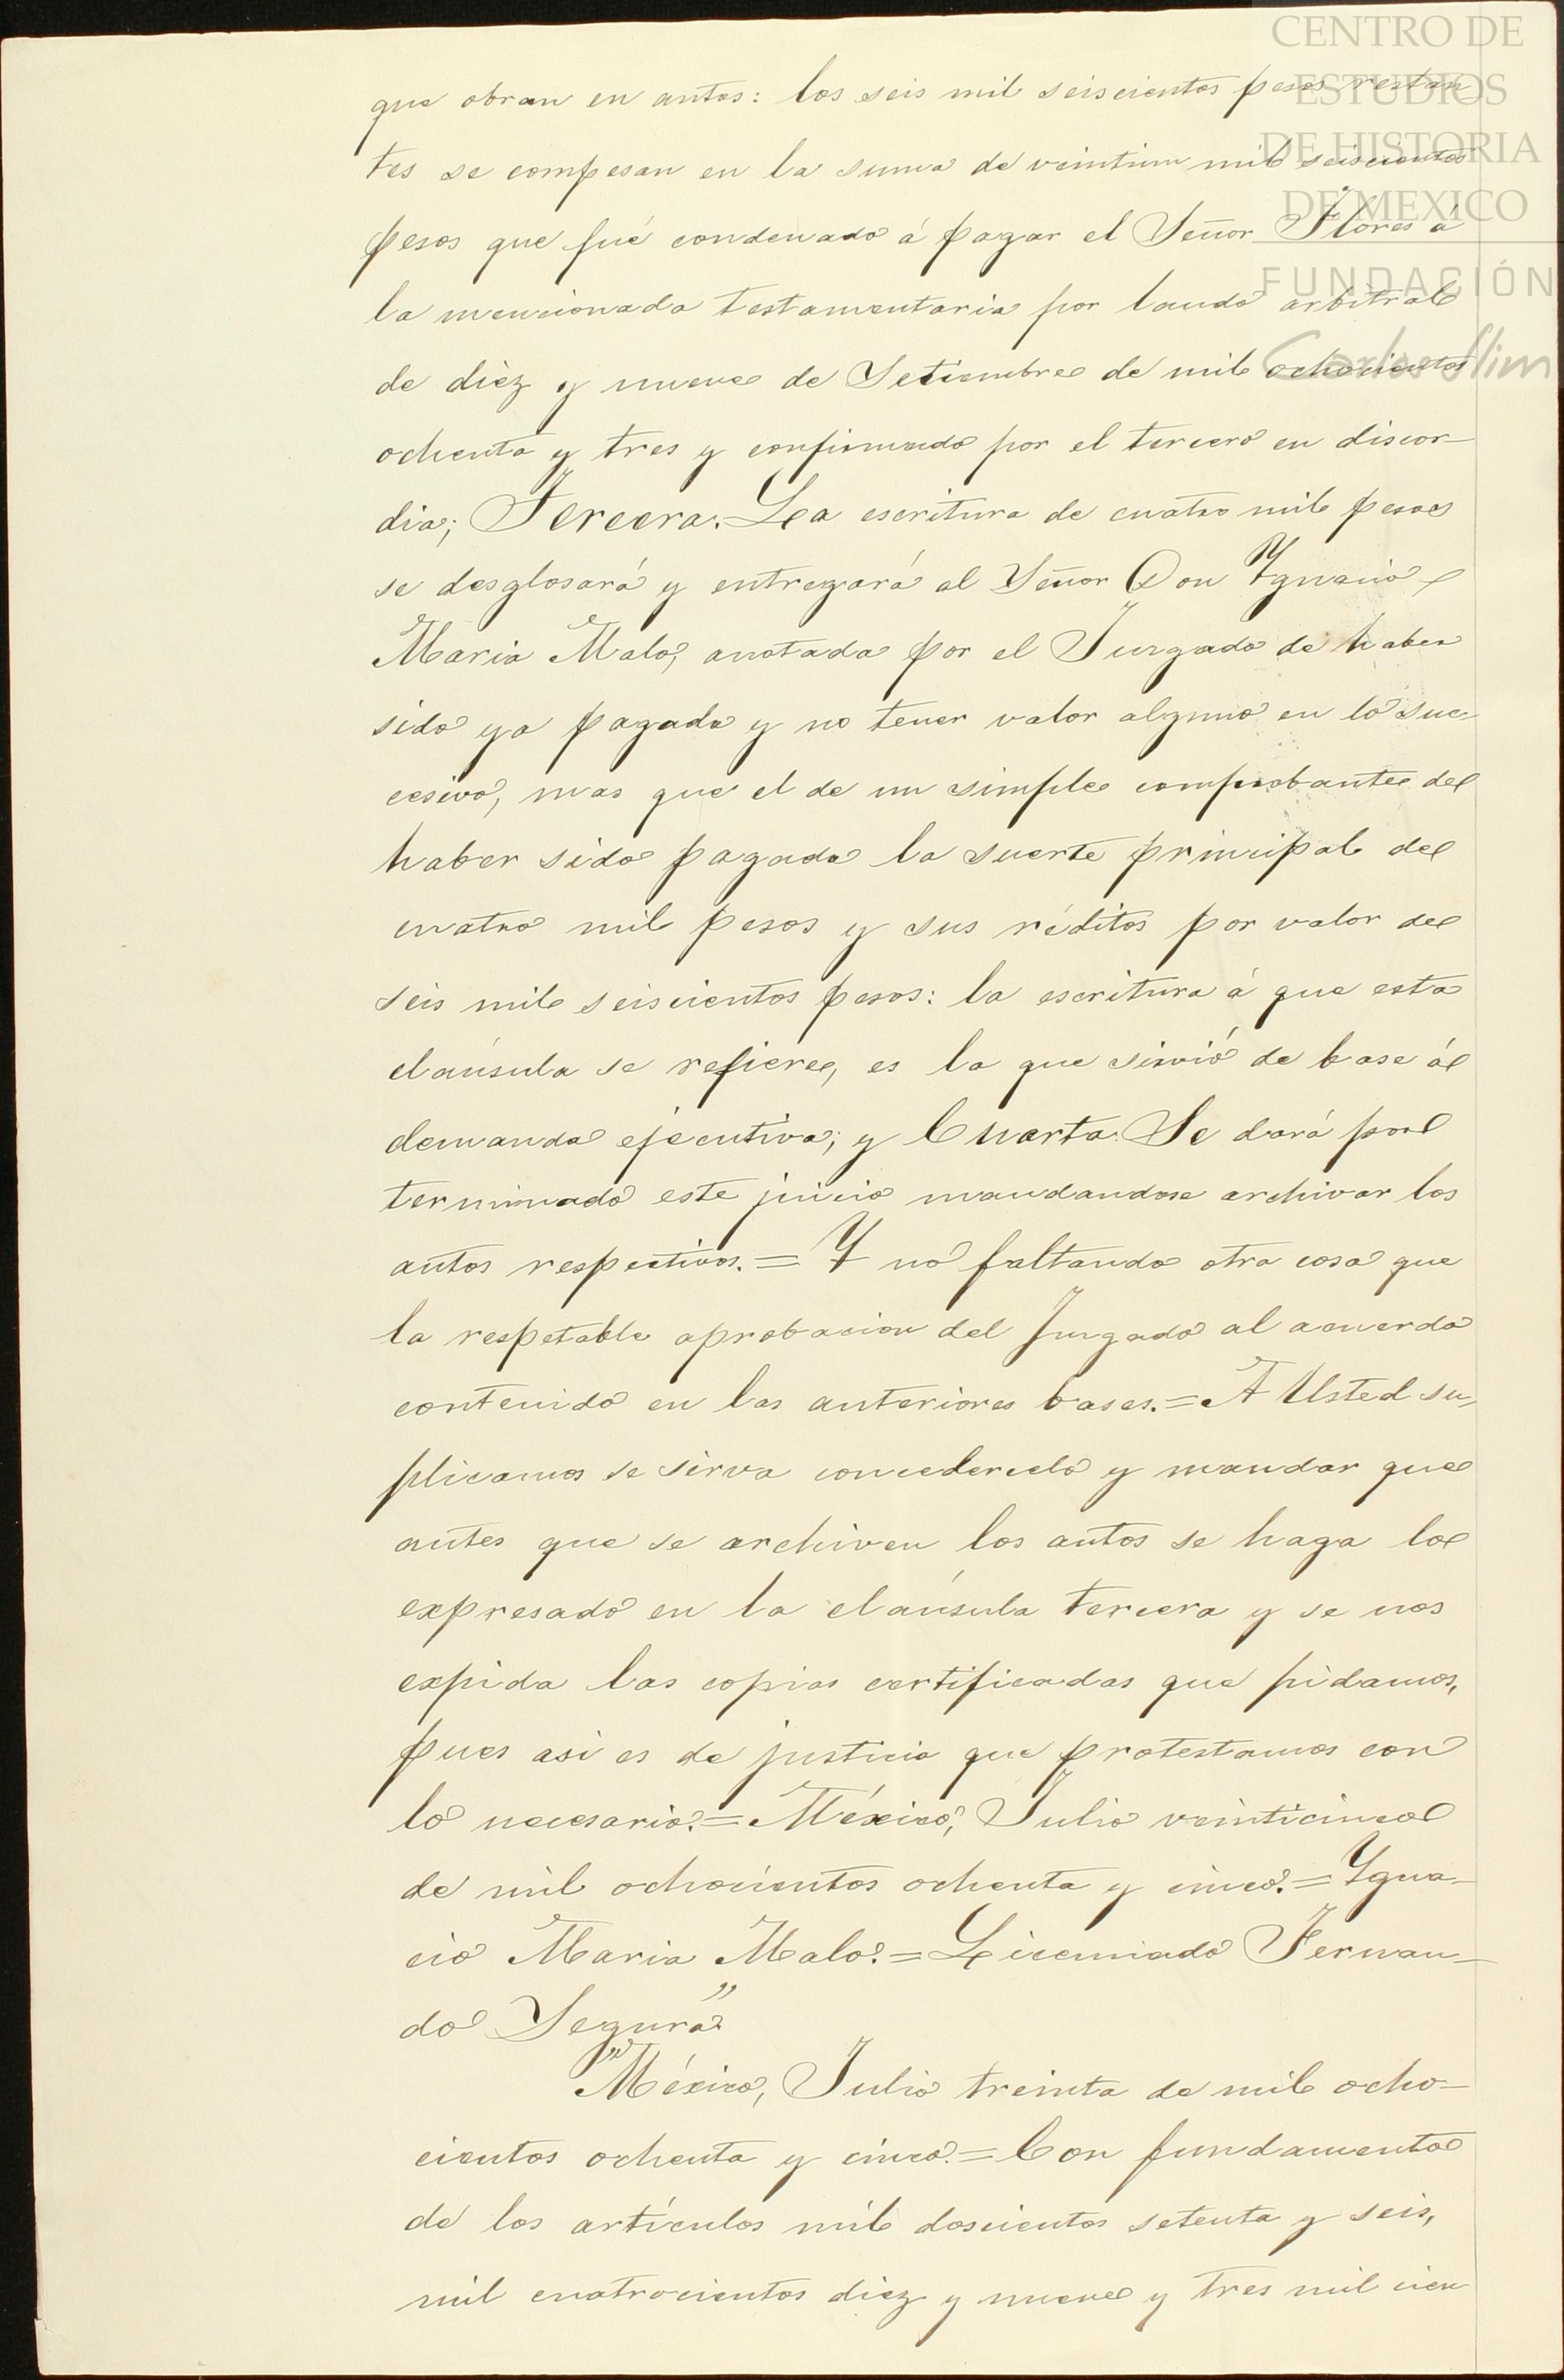 CENTRO DE
ESTUDIOS
DE HISTORIA
DE MEXICO
FUNDACIÓN
Carlos Slim
que obran en autos: los seis mil seiscientos pesos restan
tes se compesan en la suma de veintiun mil seiscientos
pesos que fué condenado á pagar el Señor Flores á
la mencionada testamentaria por laudo arbitral
de diez y nueve de Setiembre de mil ochocientos
ochenta y tres y confirmado por el tercero en discor-
dia; Tercera. La escritura de cuatro mil pesos
se desglosará y entregará al Señor Don Ygnacio
Maria Malo, anotada por el Juzgado de haber
sido ya pagada y no tener valor alguno en lo suc-
cesivo, mas que el de un simple comprobante de
haber sido pagada la suerte principal de
cuatro mil pesos y sus réditos por valor de
seis mil seiscientos pesos: la escritura á que esta
claúsula se refiere, es la que sirvió de base á
demanda ejecutiva; y Cuarta. Se dará por
terminado este juicio mandandose archivar los
autos respectivos. = Y no faltando otra cosa que
la respetable aprobacion del Juzgado al acuerdo
contenido en las anteriores bases. = A Usted su-
plicamos se sirva concedercelo y mandar que
antes que se archiven los autos se haga lo
expresado en la claúsula tercera y se nos
expida las copias certificadas que pidamos,
pues asi es de justicia que protestamos con
lo necesario. = México, Julio veinticinco
de mil ochocientos ochenta y cinco. = Ygna-
cio Maria Malo. = Licenciado Fernan-
do Segura."
"México, Julio treinta de mil ocho-
cientos ochenta y cinco. = Con fundamento
de los artículos mil doscientos setenta y seis,
mil cuatrocientos diez y nueve y tres mil cien